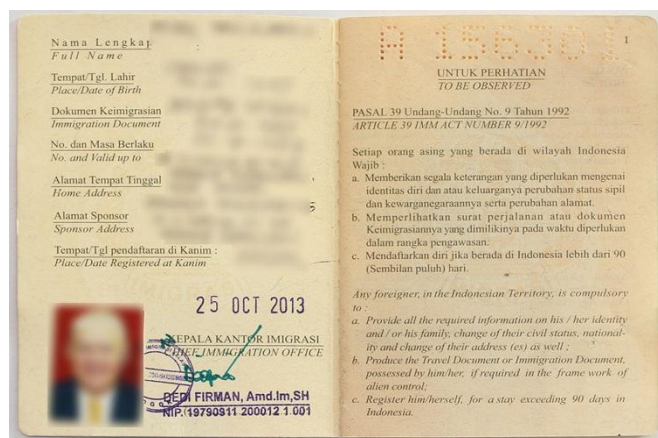 Nama Lengkap
Full Name
Tempat/Tgl. Lahir
Place/Date of Birth
Dokumen Keimigrasian
Immigration Document
No. dan Masa Berlaku
No. and Valid up to
Alamat Tempat Tinggal
Home Address
Alamat Sponsor
Sponsor Address
Tempat/Tgl pendaftaran di Kanim :
Place/Date Registered at Kanim
25 OCT 2013
KEPALA KANTOR IMIGRASI
CHIEF IMMIGRATION OFFICE
DEDI FIRMAN, Amd.Im,SH
NIP. 19790911 200012 1 001
1
UNTUK PERHATIAN
TO BE OBSERVED
PASAL 39 Undang-Undang No. 9 Tahun 1992
ARTICLE 39 IMM ACT NUMBER 9/1992
Setiap orang asing yang berada di wilayah Indonesia
Wajib :
a. Memberikan segala keterangan yang diperlukan mengenai
identitas diri dan atau keluarganya perubahan status sipil
dan kewarganegaraannya serta perubahan alamat.
b. Memperlihatkan surat perjalanan atau dokumen
Keimigrasiannya yang dimilikinya pada waktu diperlukan
dalam rangka pengawasan.
c. Mendaftarkan diri jika berada di Indonesia lebih dari 90
(Sembilan puluh) hari.
Any foreigner, in the Indonesian Territory, is compulsory
to :
a. Provide all the required information on his / her identity
and / or his family, change of their civil status, national-
ity and change of their address (es) as well ;
b. Produce the Travel Document or Immigration Document,
possessed by him/her, if required in the frame work of
alien control;
c. Register him/herself, for a stay exceeding 90 days in
Indonesia.